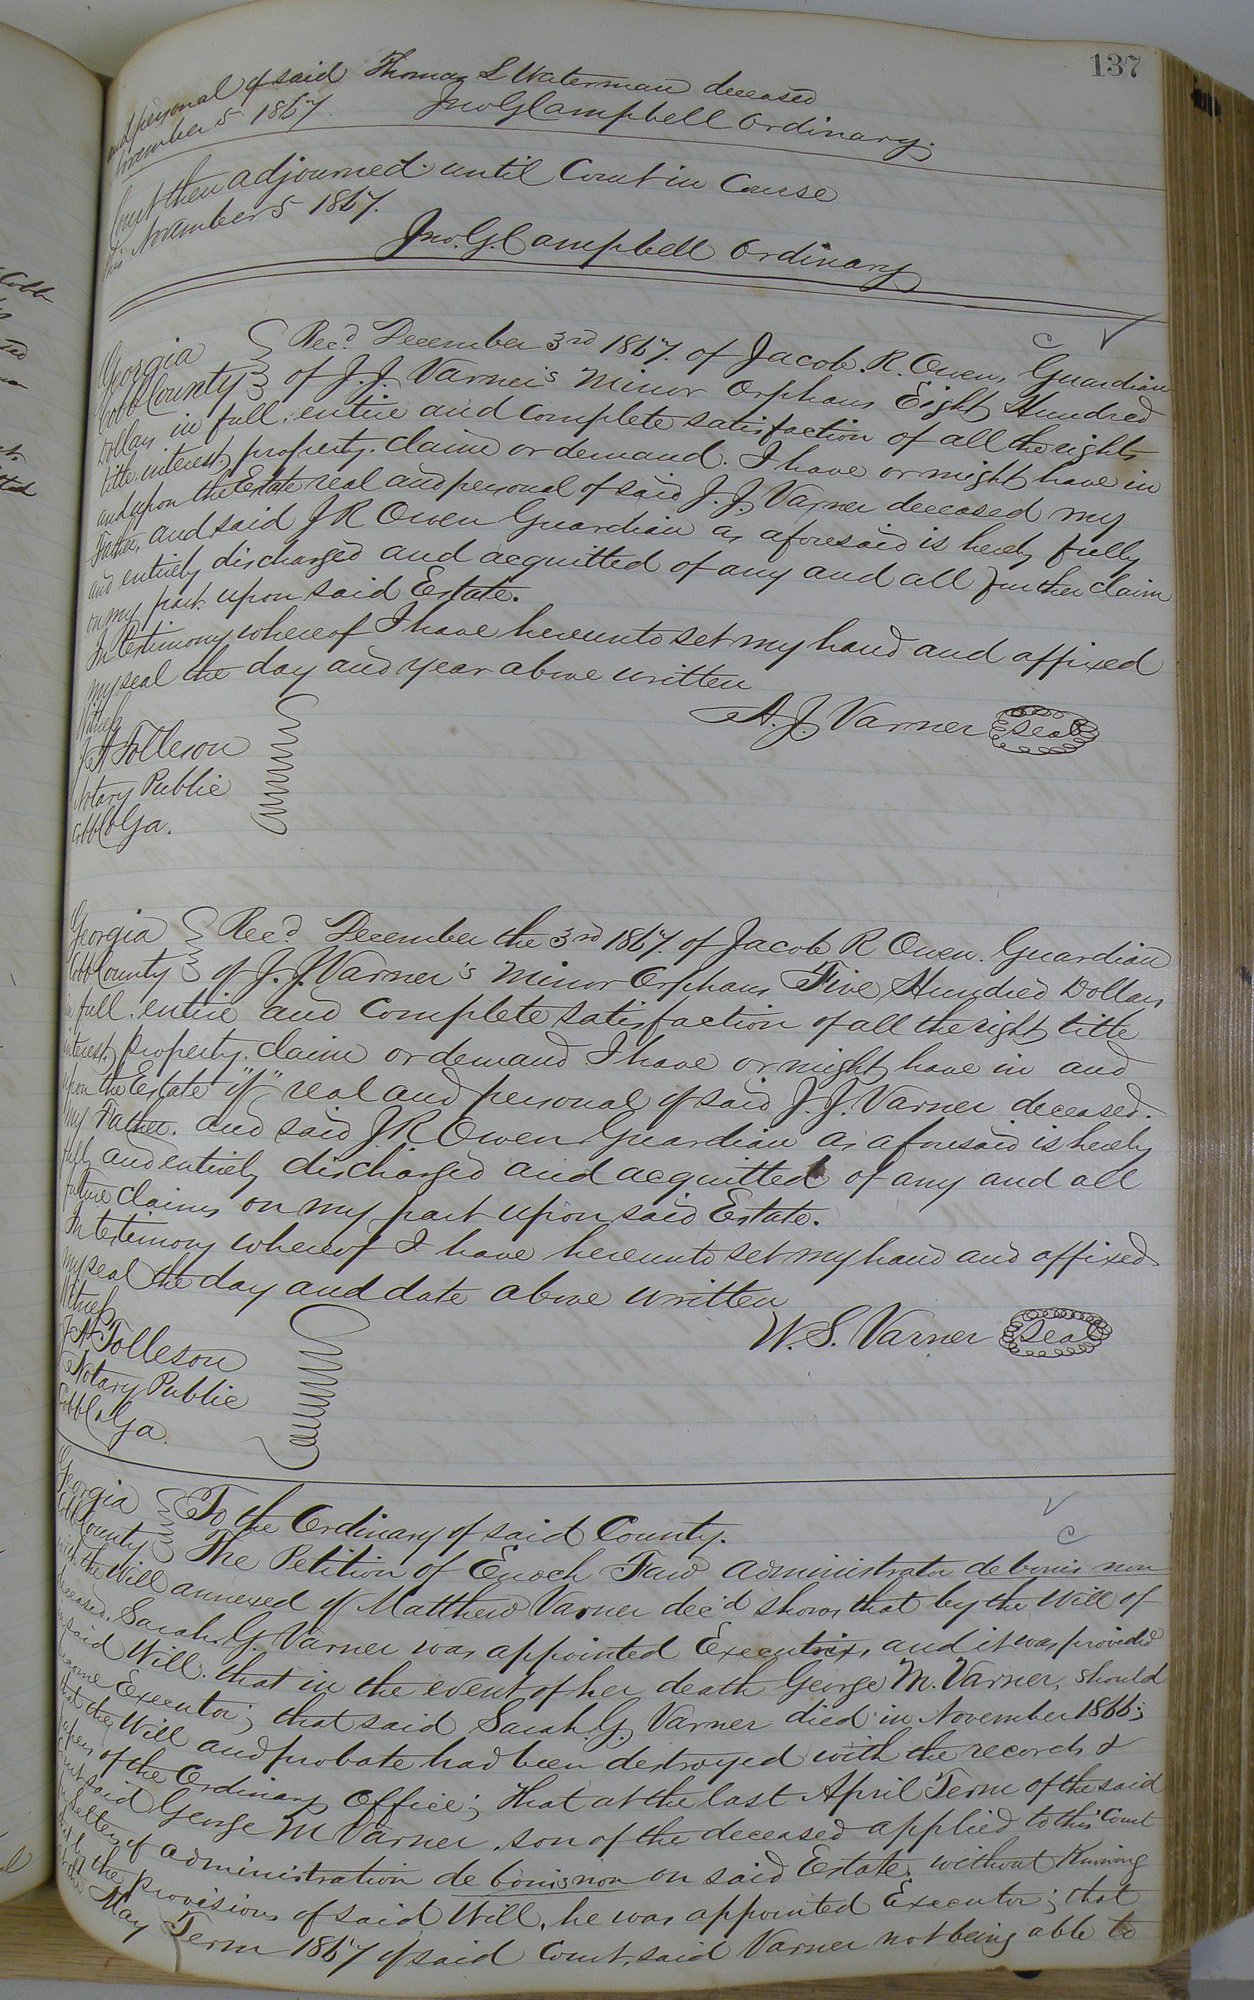 137
and personal of said Thomas L Waterman deceased
November 5 1867. Jno G Campbell Ordinary.
Court then adjourned until Court in Course
this November 5 1867.
Jno. G. Campbell Ordinary
Georgia Rec'd December 3rd 1867. of Jacob. R. Owen, Guardian
Cobb County of J. J. Varner's minor Orphans Eight Hundred
Dollars in full, entire and complete satisfaction of all the right,
title, interest, property, claim or demand. I have or might have in
and upon the Estate real and personal of said J. J. Varner deceased my
Father, and said J R Owen Guardian as aforesaid is hereby fully
and entirely discharged and acquitted of any and all further claim
on my part upon said Estate.
In testimony whereof I have hereunto set my hand and affixed
my seal the day and year above written
A. J. Varner Seal
Witness
J A Tolleson
Notary Public
Cobb Co Ga.
Georgia Rec'd December the 3rd 1867. of Jacob R Owen. Guardian
Cobb County of J. J. Varner's Minor Orphans Five Hundred Dollars
in full, entire and complete satisfaction of all the right title
interest, property, claim or demand I have or might have in and
upon the Estate "of" real and personal of said J. J. Varner deceased.
my Father. and said J R Owen Guardian as aforesaid is hereby
fully and entirely discharged and acquitted of any and all
future claims on my part upon said Estate.
In testimony whereof I have hereunto set my hand and affixed
my seal the day and date above written
W. S. Varner Seal
Witness
J A Tolleson
Notary Public
Cobb Co Ga.
Georgia To the Ordinary of said County.
Cobb County The Petition of Enoch Faw administrator de bonis non
with the Will annexed of Matthew Varner dec'd shows that by the Will of
deceased, Sarah. G. Varner was appointed Executrix, and it was provided
in said Will. that in the event of her death George M. Varner, should
become Executor; that said Sarah. G. Varner died in November 1866;
that the Will and probate had been destroyed with the records &
papers of the Ordinary Office; that at the last April Term of the said
Court said George M Varner, son of the deceased applied to this Court
for letters of administration de bonis non on said Estate, without Knowing
that by the provisions of said Will, he was appointed Executor; that
May Term 1867 of said Court, said Varner not being able to